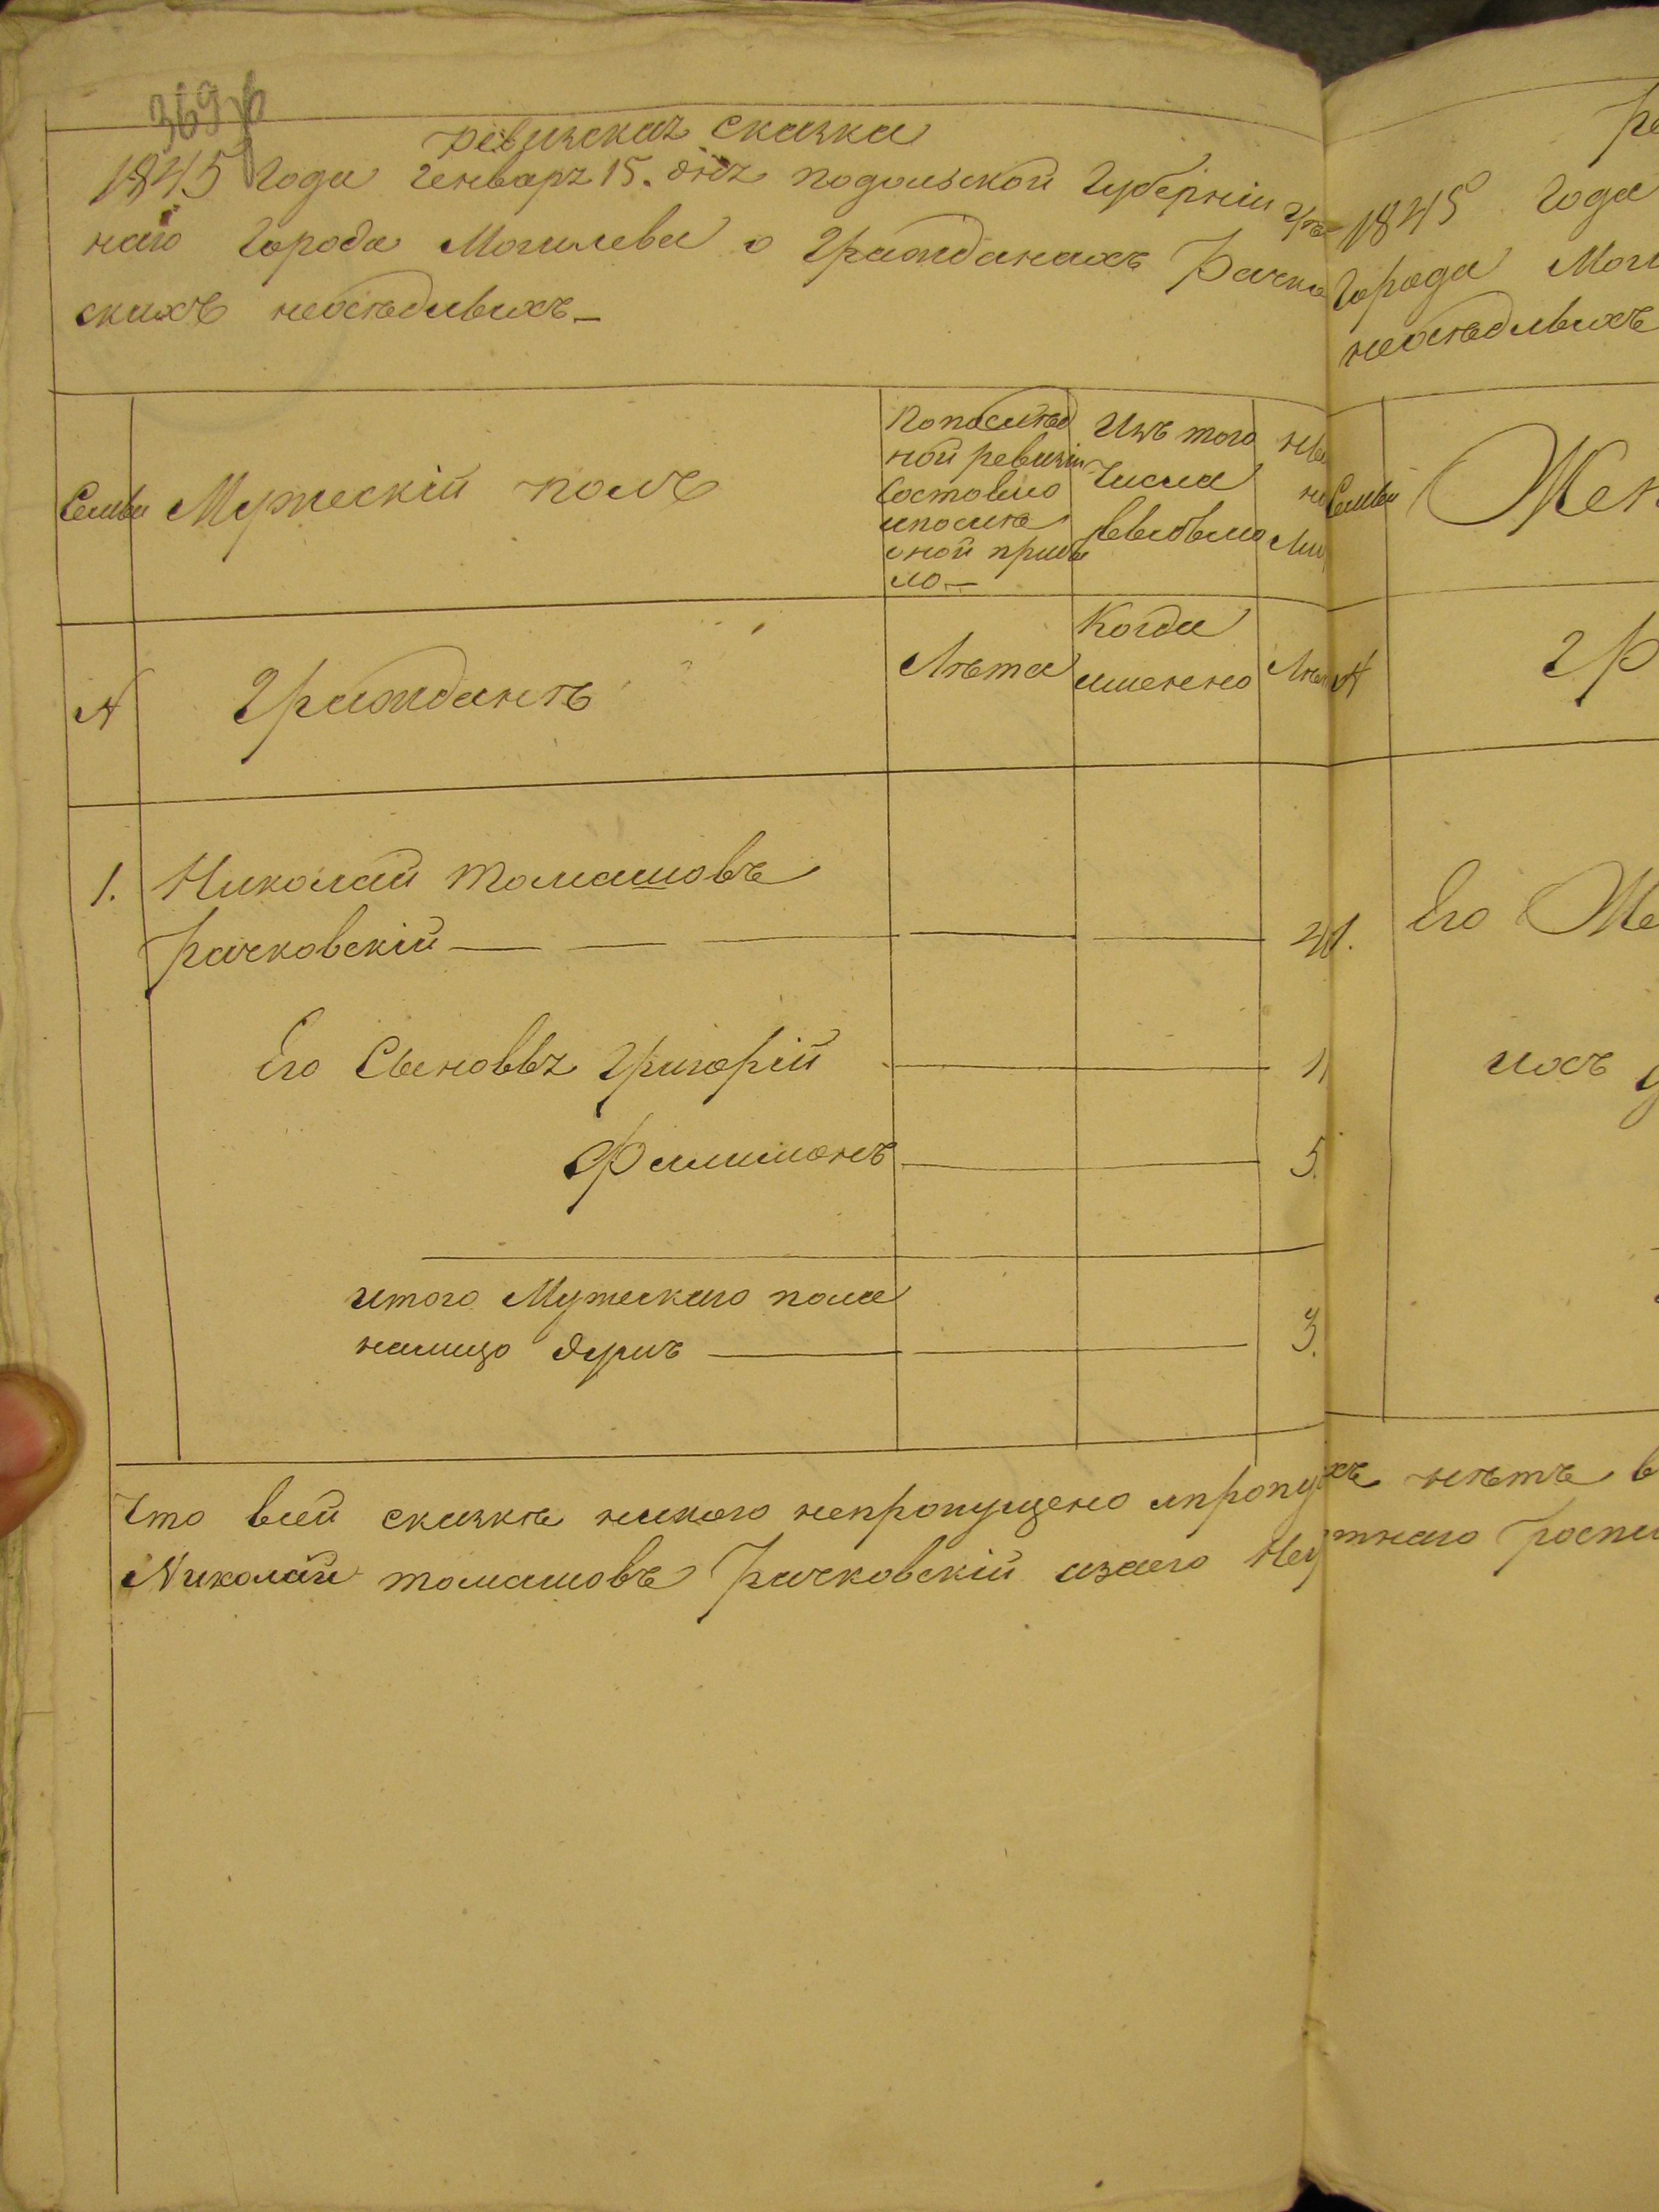 369 об
ревизская сказка
1845 Года Генваря 15. дня подольской Губерніи Уѣзд
наго Города Могилева о Гражданахъ Рачков
скихъ неосѣдлыхъ
Семьи
Мужескій полъ
Попослѣд
ной ревизіи
Состояло
ипослѣ
оной прибы
ло
Изъ того
Числа
выбыло
№
Граждане
Лѣта
Когда
именно
1. Николай томашовъ
Рачковскій
Его Сыновья Григорій
Филимонъ 5.
итого Мужескаго пола
налицо душъ 3.
Что всей сказкѣ никого непропущено ипропу
Николай томашовъ Рачковскій азаего Неу
1845 Года
Города Моги
неосѣдлыхъ
Семьи
Жен
№
Гр
1. Его Же
ихъ
хъ нѣтъ в
тнаго роспи